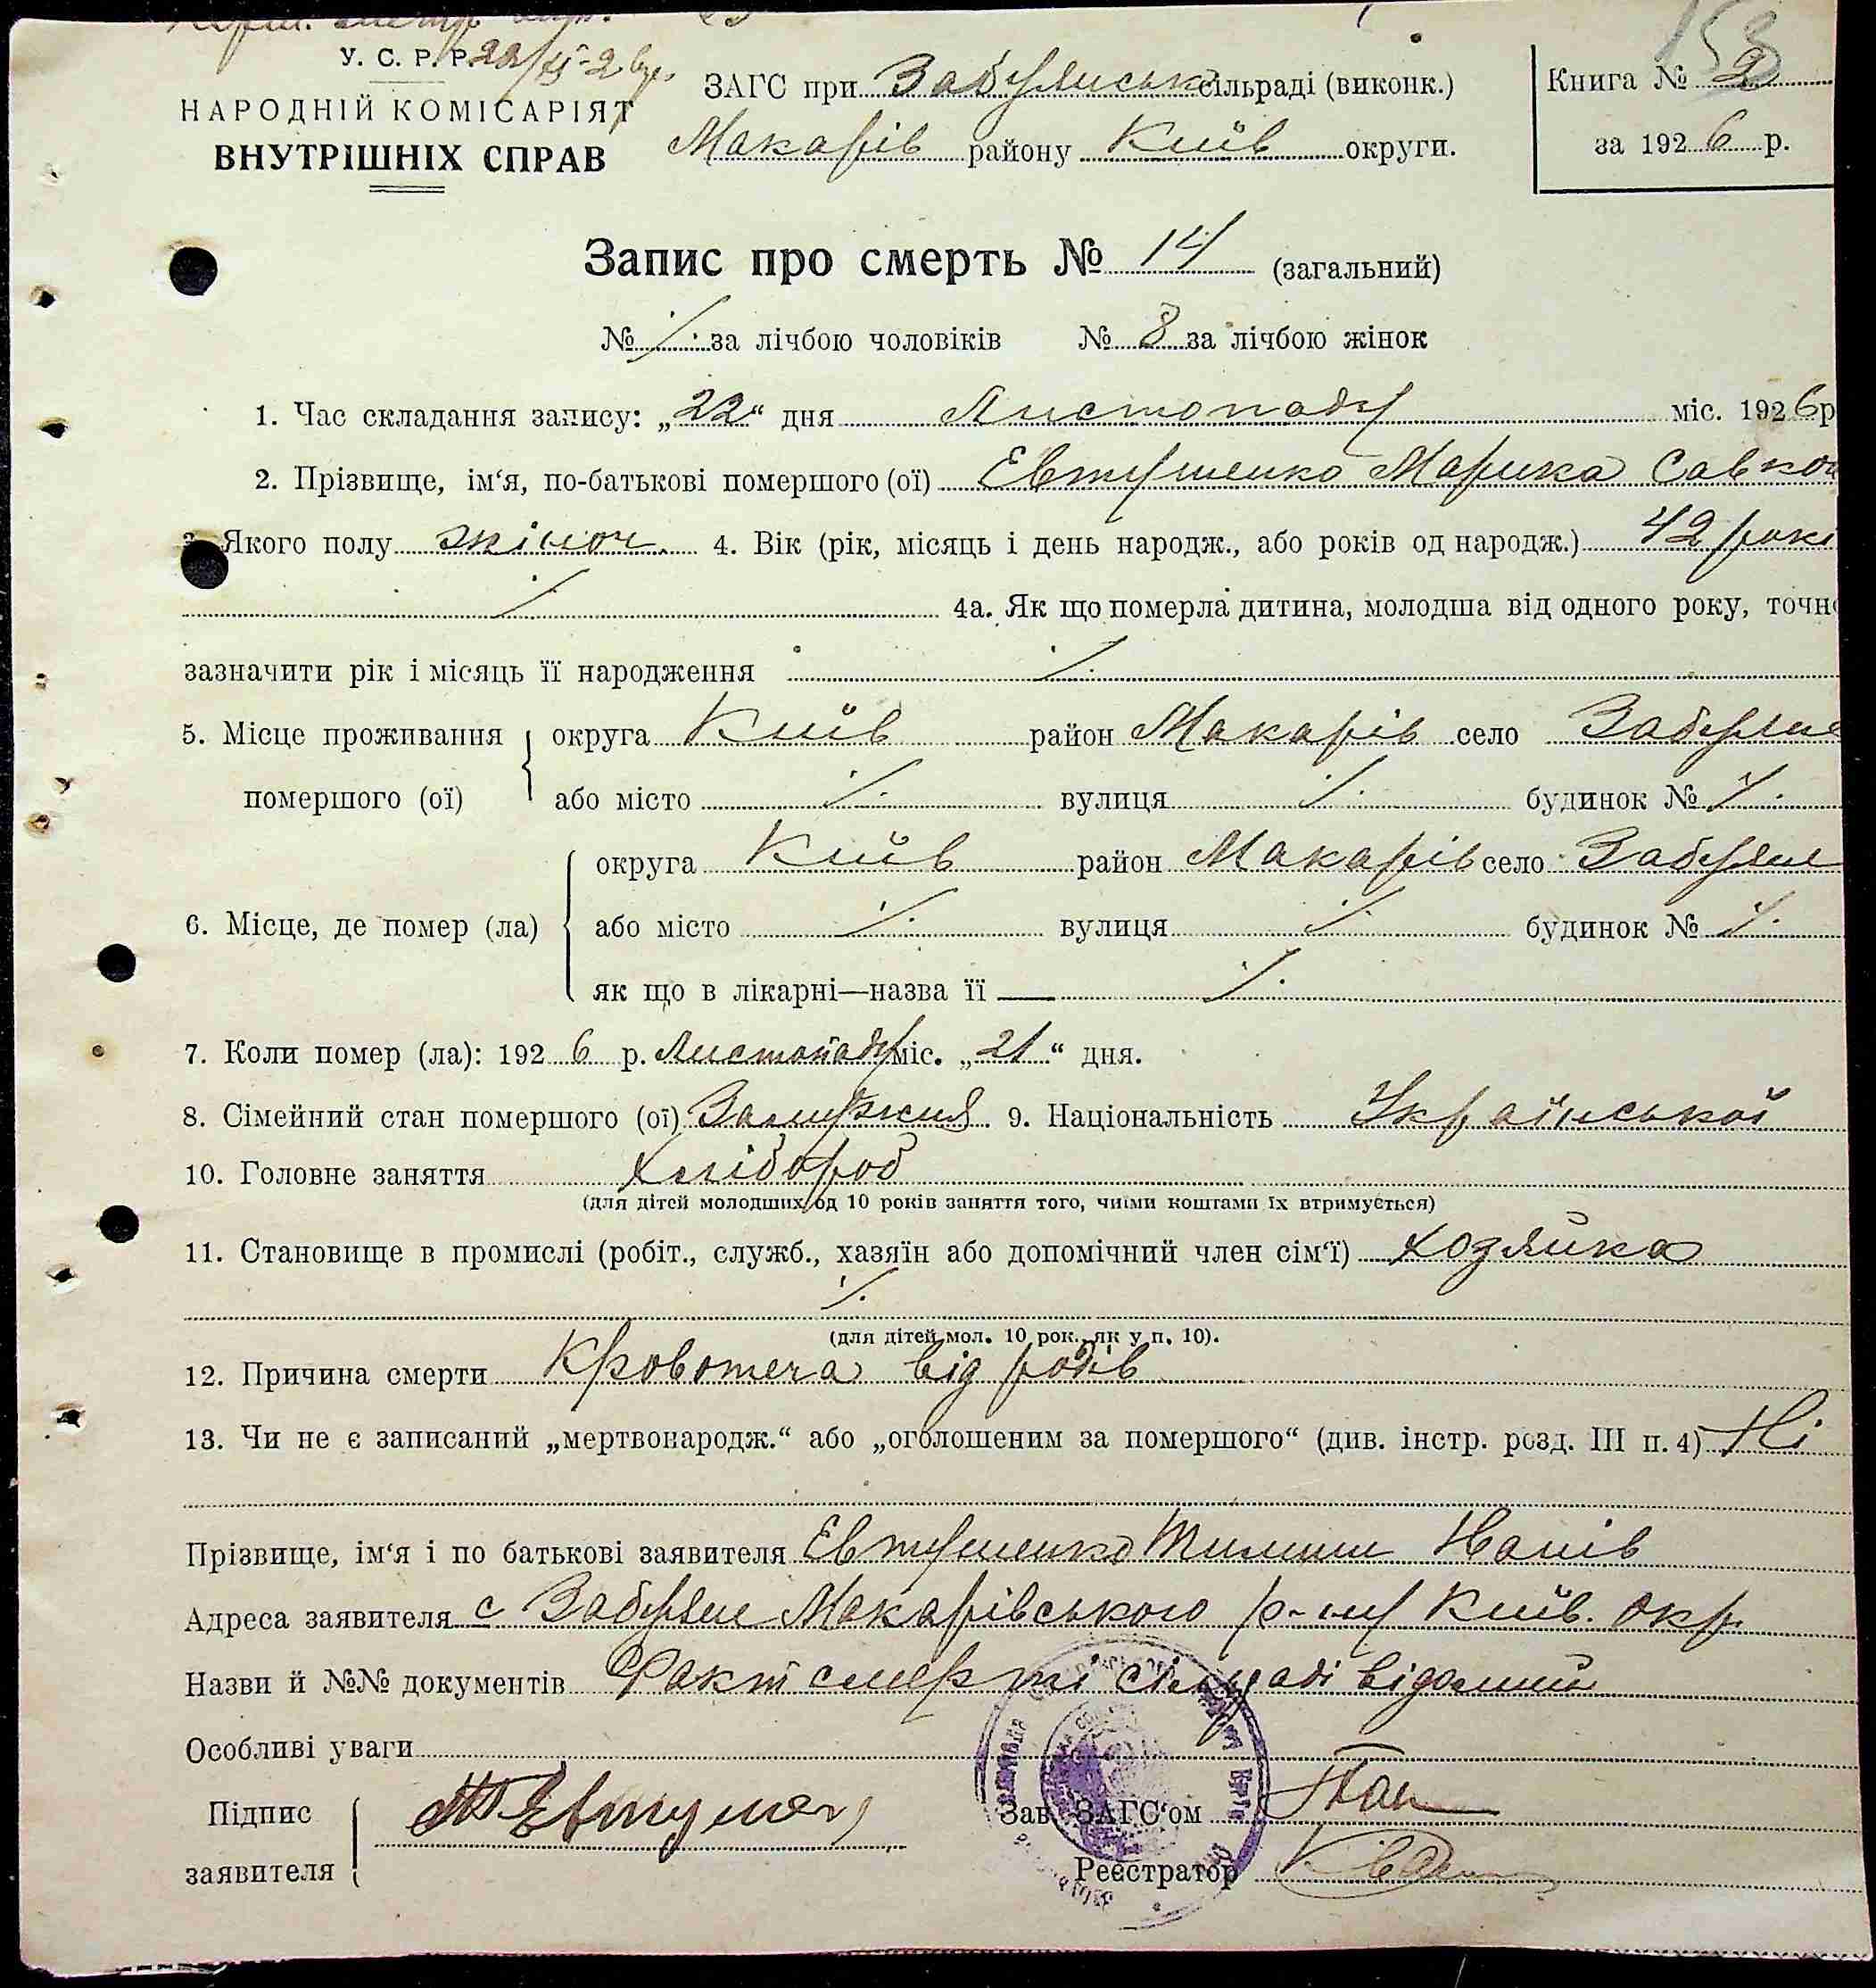 У. С. Р. Р.
НАРОДНІЙ КОМІСАРІЯТ
ВНУТРІШНІХ СПРАВ
ЗАГС при Забуянськ сільраді (виконк.)
Макарів району Київ округи.
153
Книга № 2
за 1926 р.
Запис про смерть № 14 (загальний)
№ ·/· за лічбою чоловіків № 8 за лічбою жінок
1. Час складання запису: „22“ дня Листопаду міс. 1926 р
2. Прізвище, ім‘я, по-батькові помершого (ої) Евтушенко Марика Савков
3. Якого полу жіноч. 4. Вік (рік, місяць і день народж., або років од народж.) 42 рокі
·/· 4а. Як що померла дитина, молодша від одного року, точно
зазначити рік і місяць її народження ·/·
5. Місце проживання помершого (ої) округа Київ район Макарів село Забуяне
або місто ·/· вулиця ·/· будинок № ·/·
6. Місце, де помер (ла) округа Київ район Макарів село Забуяне
або місто ·/· вулиця ·/· будинок № ·/·
як що в лікарні—назва її ·/·
7. Коли помер (ла): 1926 р. Листопаду міс. „21“ дня.
8. Сімейний стан помершого (ої) Замужня 9. Національність Української
10. Головне заняття Хлібороб
(для дітей молодших од 10 років заняття того, чиїми коштами їх втримується)
11. Становище в промислі (робіт., служб., хазяїн або допомічний член сім‘ї) хозяйка
·/·
(для дітей мол. 10 рок., як у п. 10).
12. Причина смерти Кровотеча від родів
13. Чи не є записаний „мертвонародж.“ або „оголошеним за помершого“ (див. інстр. розд. III п. 4) Ні
Прізвище, ім‘я і по батькові заявителя Евтушенко Тимиш
Адреса заявителя с Забуяне Макарівського р-ну Київ. Окр.
Назви й №№ документів Факт смерті сільраді відомий
Особливі уваги
Підпис заявителя Т Евтушен
Зав. ЗАГС‘ом
Реєстратор